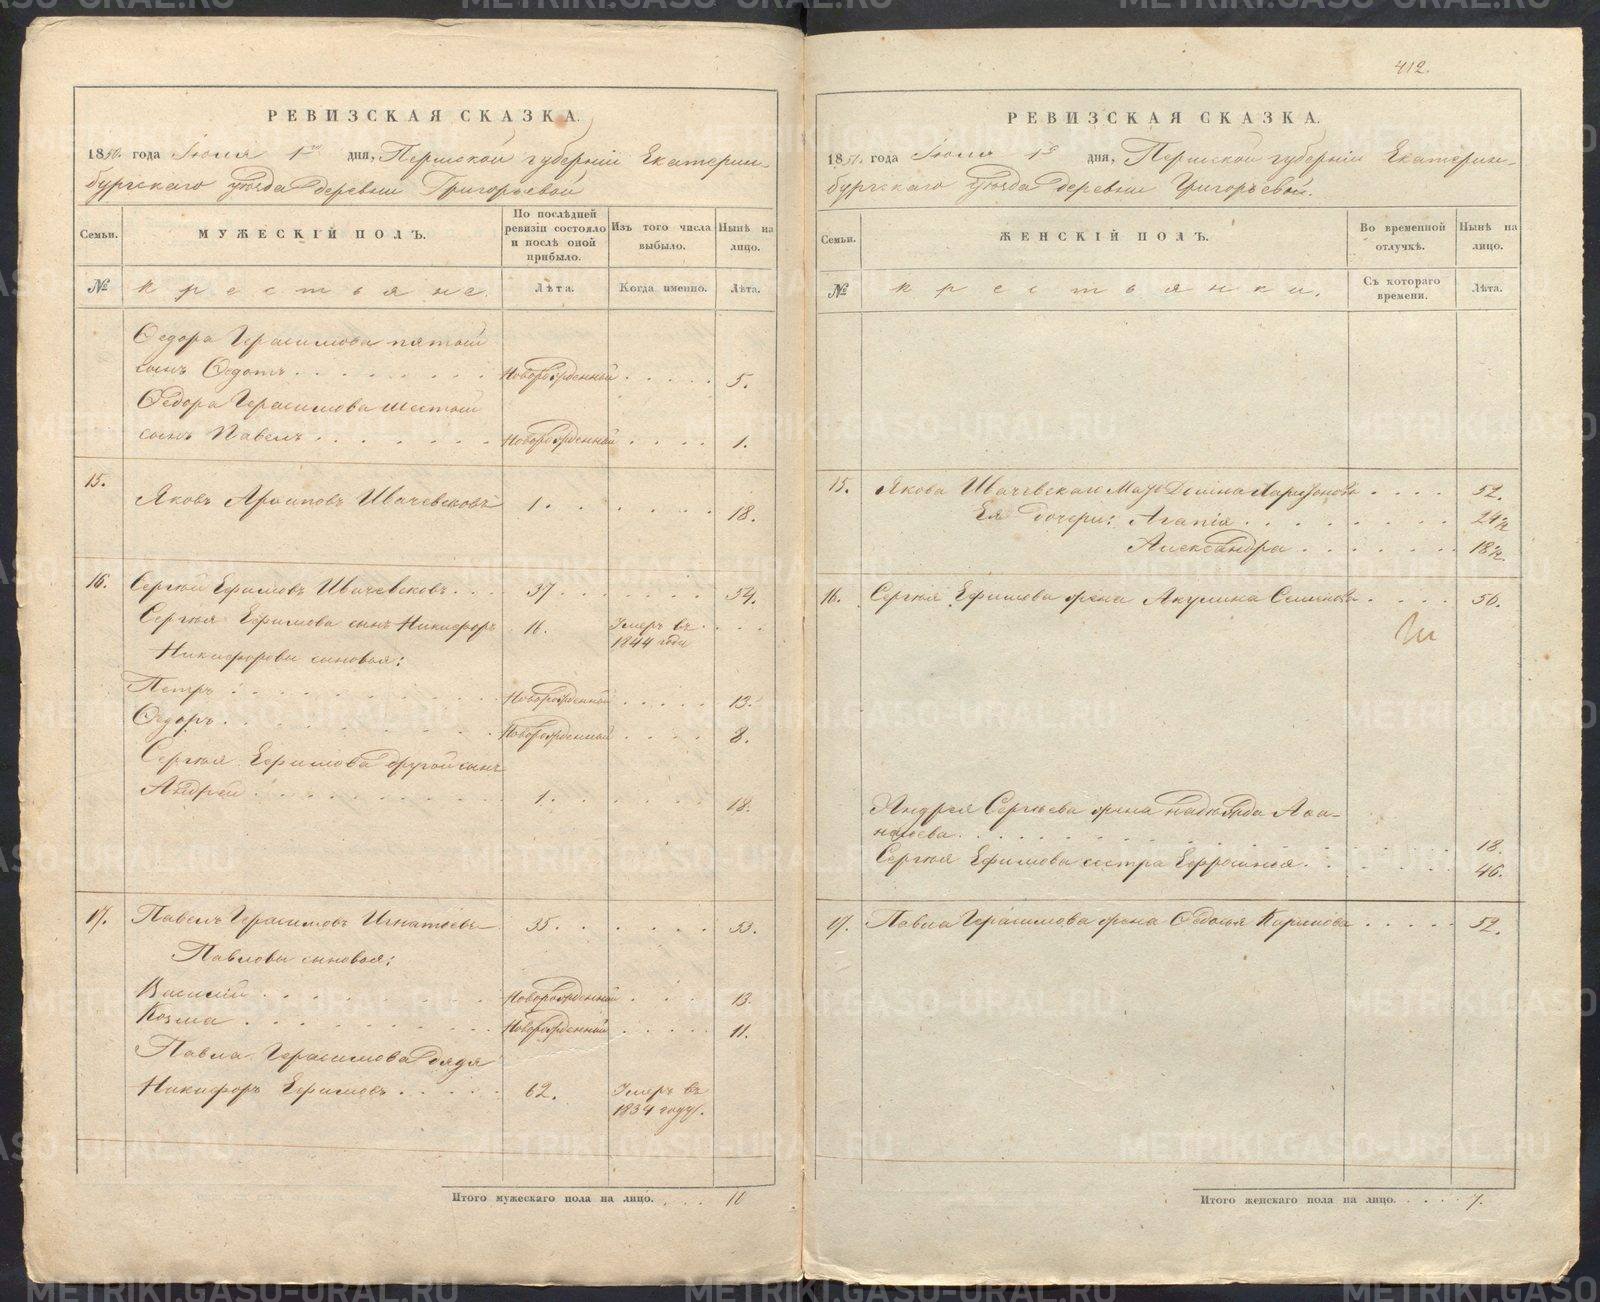 412.
РЕВИЗСКАЯ СКАЗКА.
1850 года Іюля 1го дня, Пермской губерніи Екатерин-
бургскаго уѣзда деревни Григорьевой
Семьи.
МУЖЕСКІЙ ПОЛЪ.
По послѣдней ревизіи состояло и послѣ оной прибыло.
Изъ того числа выбыло.
Нынѣ на лицо.
№
крестьяне.
Лѣта.
Когда именно.
Лѣта.
Ѳедора Герасимова пятый
сынъ Ѳедотъ . . . Новорожденный . . . 5.
Ѳедора Герасимова шестой
сынъ Павелъ . . . Новорожденный . . . 1.
15.
Яковъ Архиповъ Ивачевсковъ 1. . . . 18.
16. Сергѣй Ефимовъ Ивачевсковъ . . . 37 . . . 54.
Сергѣя Ефимова сынъ Никифоръ 16. Умеръ въ . . .
1844 году
Никифоровы сыновья:
Петръ . . . Новорожденной . . . 13.
Ѳедоръ . . . Новорожденный . . . 8.
Сергѣя Ефимова другой сынъ
Андрей . . . 1. . . . 18.
17. Павелъ Герасимовъ Игнатьевъ 35. . . . 53.
Павловы сыновья:
Василій . . . Новорожденный . . . 13.
Козма . . . Новорожденный . . . 11.
Павла Герасимова дядя
Никифоръ Ефимовъ . . . 62. Умеръ въ
1834 году.
Итого мужескаго пола на лицо. . . . 10
РЕВИЗСКАЯ СКАЗКА.
1850 года Іюля 1го дня, Пермской губерніи Екатерин-
бургскаго уѣзда деревни Григорьевой.
Семьи.
ЖЕНСКІЙ ПОЛЪ.
Во временной отлучкѣ.
Нынѣ на лицо.
№
крестьянки.
Съ котораго времени.
Лѣта.
15. Якова Ивачевскаго Мать Домна Ларионова . . . 52.
Ея дочери: Агапія . . . 24 1/2
Александра . . . 18 1/2.
16. Сергѣя Ефимова жена Акулина Семенова . . . 56.
Андрея Сергѣева жена Надежда Аѳа-
насьева . . . 18.
Сергѣя Ефимова сестра Ефросинья . . . 46.
17. Павла Герасимова жена Овдотья Карпова . . . 52.
Итого женскаго пола на лицо. . . . 7.
METRIKI.GASO-URAL.RU